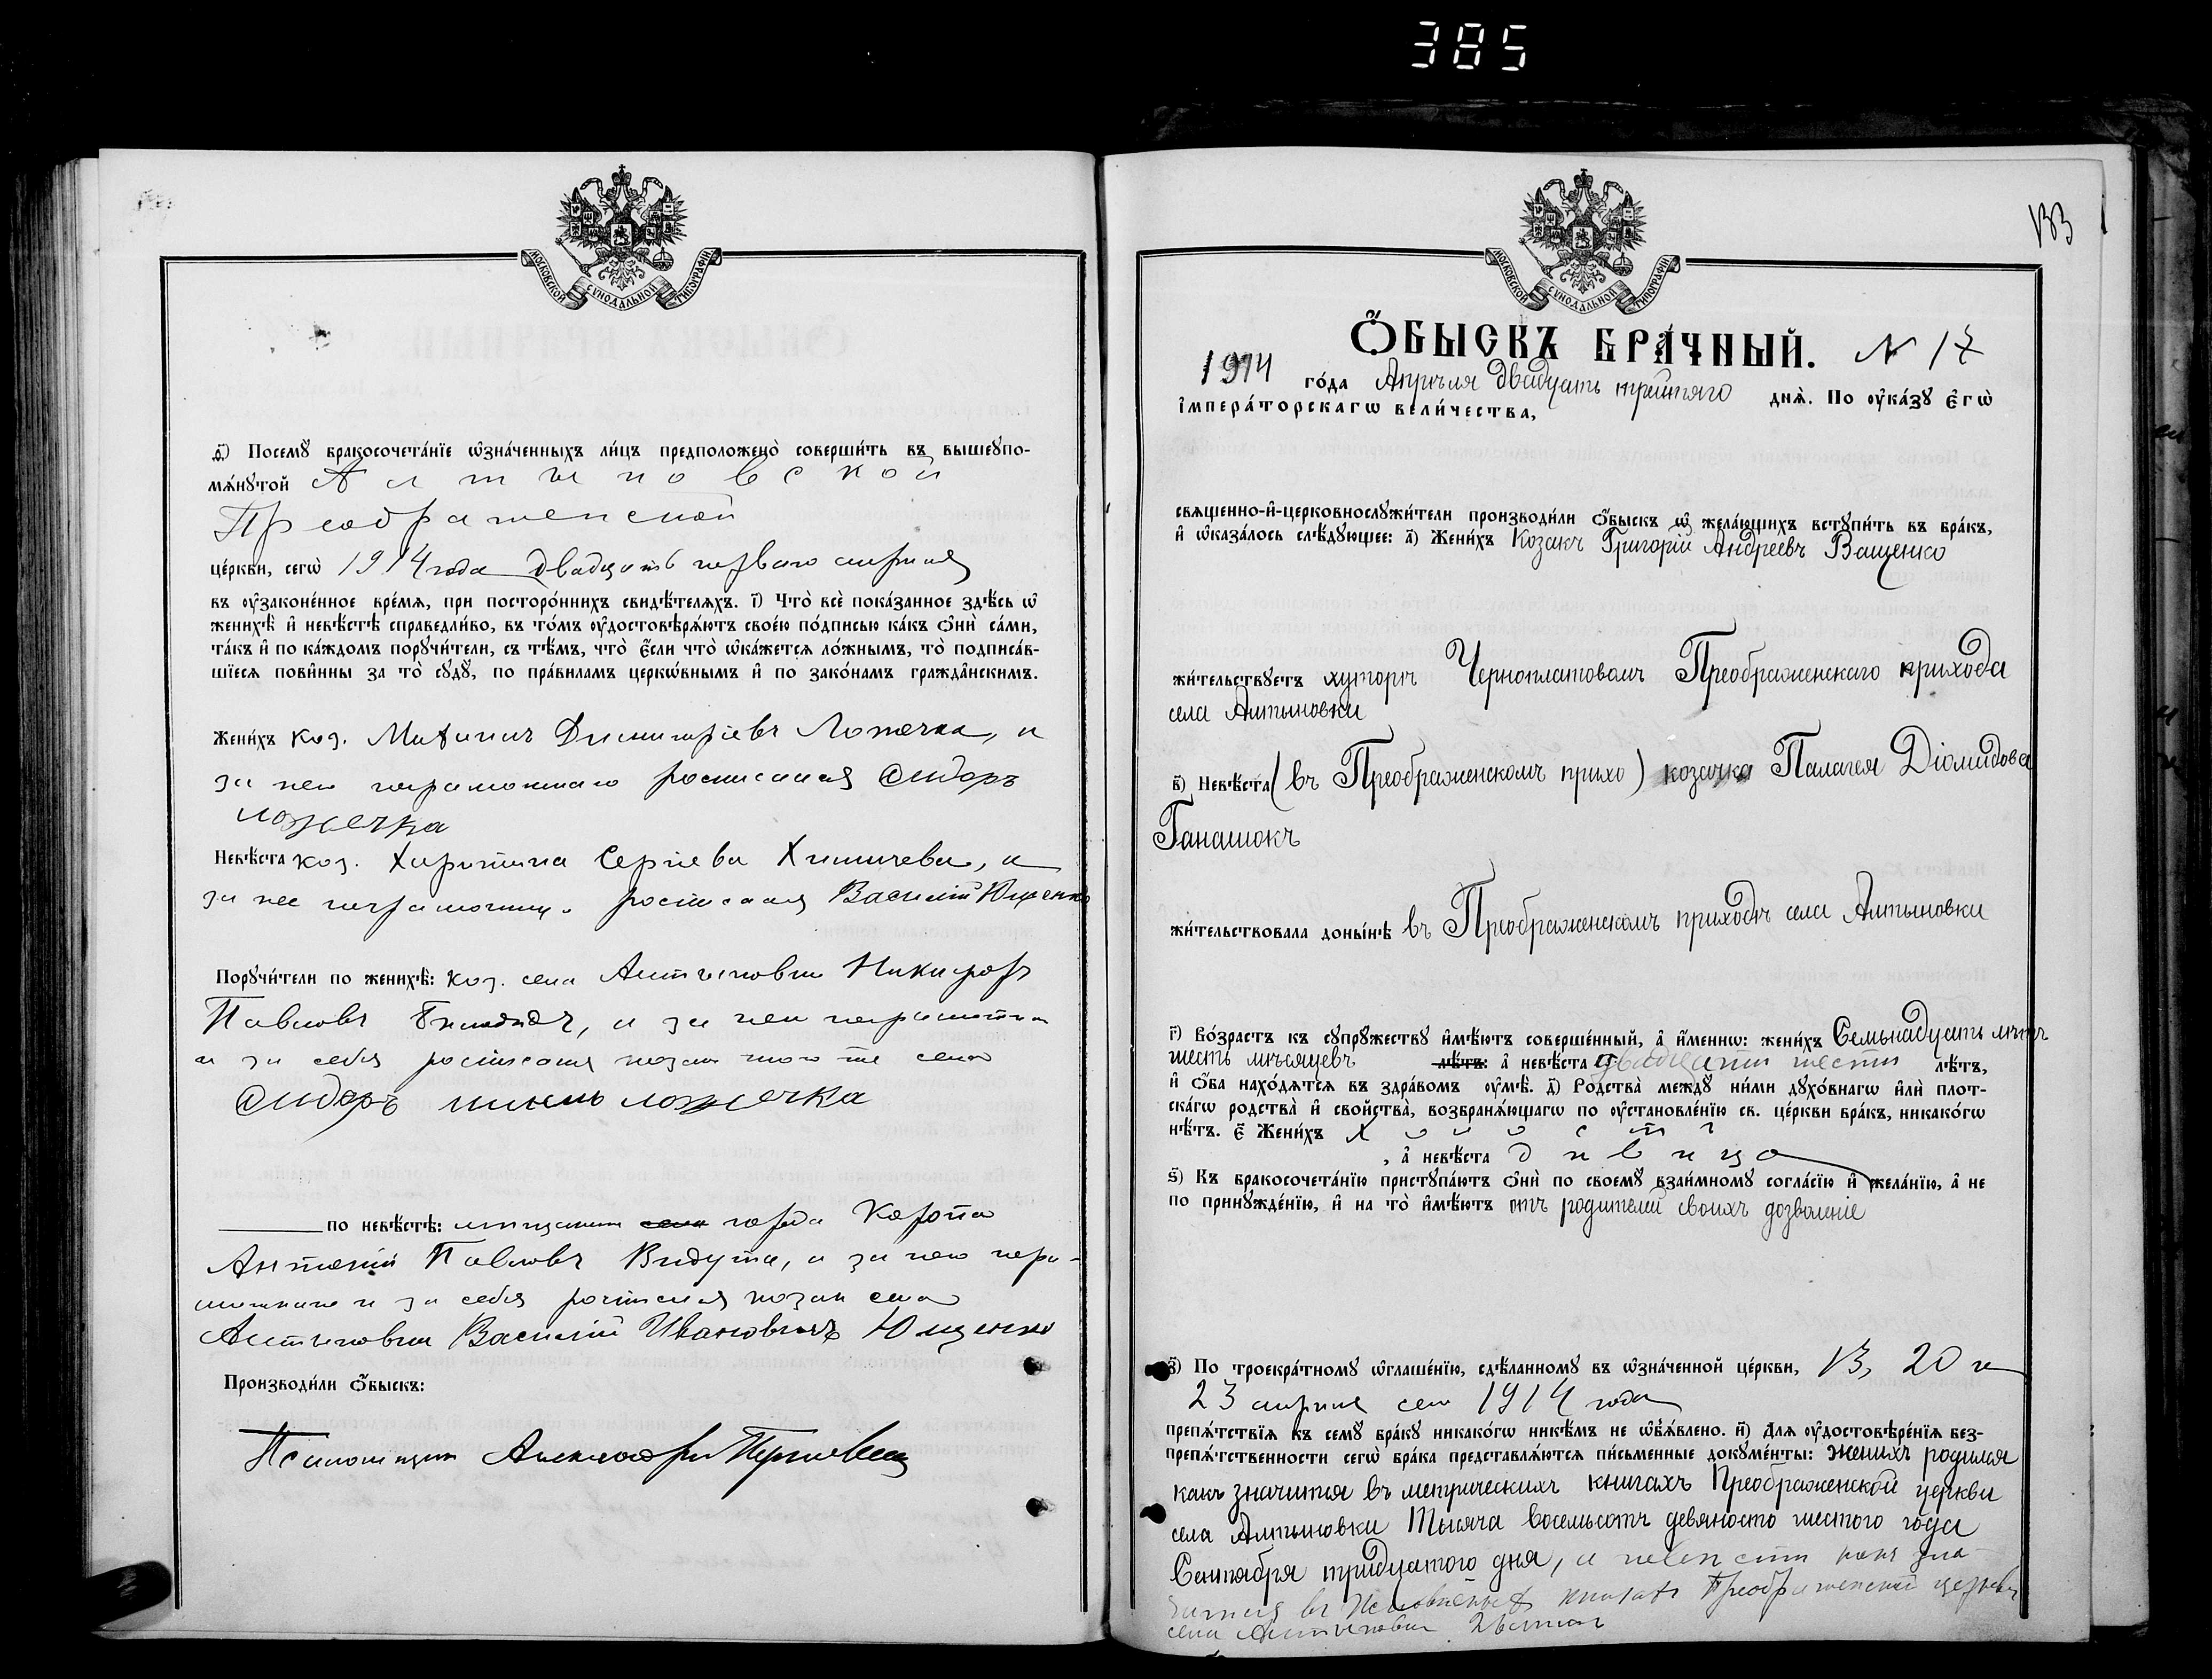 385
МОСКОВСКОЙ СУНОДАЛЬНОЙ ТИПОГРАФІИ
д҃) Посемꙋ бракосочета́нїе ѡ҆зна́ченныхъ ли́цъ предположено̀ соверши́ть въ вышеꙋпо-
мѧ́нꙋтой Алтыновской
Преображенской
це́ркви, сегѡ̀ 1914 года двадцать перваго апрѣля
въ ѹ҆законе́нное вре́мѧ, при посторо́ннихъ свидѣ́телѧхъ. і҃) Что̀ всѐ пока́занное здѣ́сь ѡ҆
женихѣ̀ и҆ невѣ́стѣ справедли́во, въ то́мъ ѹ҆достовѣрѧ́ютъ свое́ю по́дписью ка́къ ѻ҆нѝ са́ми,
та́къ и҆ по ка́ждомъ порꙋчи́тели, съ тѣ́мъ, что̀ є҆́сли что̀ ѡ҆ка́жетсѧ ло́жнымъ, то̀ подписа́в-
шїесѧ пови́нны за то̀ сꙋдꙋ̀, по пра́виламъ церкѡ́внымъ и҆ по зако́намъ гражда̑нскимъ.
Жени́хъ коз. Димитріевъ Ложечка, и
за него неграмотнаго росписался Сидоръ
ложечка
Невѣ́ста коз. Харитина Сергіева Химичева, и
за нее неграмотную росписался Василій Ющенко
Порꙋчи́тели по женихѣ̀: коз. села Алтыновки Никифоръ
Павловъ и за него неграмотна
и за себя росписался козак того же села
Сидоръ ложечка
по невѣ́стѣ: мѣщанинъ города Коропа
Антоній Павловъ Видута, и за него негра-
мотнаго и за себя росписался козак села
Алтыновки Василій Ивановичъ Ющенко
Производи́ли ѻ҆́быскъ:
Псаломщикъ Александръ
133
МОСКОВСКОЙ СУНОДАЛЬНОЙ ТИПОГРАФІИ
Ѻ҆́БЫСКЪ БРА́ЧНЫЙ. № 17
1914 го́да Апрѣля двадцать третьяго днѧ̀. По ѹ҆ка́зꙋ є҆гѡ̀
і҆мпера́торскагѡ вели́чества,
свѧщенно-и҆-церковнослꙋжи́тели производи́ли ѻ҆́быскъ ѡ҆ жела́ющихъ встꙋпи́ть въ бра́къ,
и҆ ѡ҆каза́лось слѣ́дꙋющее: а҃) Жени́хъ Козакъ Григорій Андреевъ Ващенко
жи́тельствꙋетъ хуторѣ Черноплатовомъ Преображенскаго прихода
села Алтыновки
в҃) Невѣ́ста (въ Преображенскомъ прихо) козачка Палагея Діомидова
Ганашокъ
жи́тельствовала доны́нѣ въ Преображенскомъ приходѣ села Алтыновки
г҃) Во́зрастъ къ сꙋпрꙋ́жествꙋ и҆мѣ́ютъ соверше́нный, а҆ и҆́меннѡ: жени́хъ Семьнадцать лѣтъ
шесть мѣсяцевъ лѣ́тъ: а҆ невѣ́ста двадцати шести лѣ́тъ,
и҆ ѻ҆́ба нахо́дѧтсѧ въ здра́вомъ ѹ҆мѣ̀. д҃) Родства̀ междꙋ̀ ни́ми дꙋхо́внагѡ и҆лѝ плот-
ска́гѡ родства̀ и҆ свойства̀, возбранѧ́ющагѡ по ѹ҆становле́нїю св. це́ркви бра́къ, никако́гѡ
нѣ́тъ. є҃) Жени́хъ холостъ
, а҆ невѣ́ста дѣвица
ѕ҃) Къ бракосочета́нїю пристꙋпа́ютъ ѻ҆нѝ по своемꙋ̀ взаи́мномꙋ согла́сїю и҆ жела́нїю, а҆ не
по принꙋжде́нїю, и҆ на то̀ и҆мѣ́ютъ отъ родителей своихъ дозволеніе
з҃) По троекра́тномꙋ ѡ҆глаше́нїю, сдѣ́ланномꙋ въ ѡ҆зна́ченной це́ркви, 13, 20 и
23 апрѣля сего 1914 года
препѧ́тствїѧ къ семꙋ̀ бра́кꙋ никако́гѡ никѣ́мъ не ѡ҆б̾ѧ́влено. и҃) Длѧ ѹ҆достовѣре́нїѧ без-
препѧ́тственности сегѡ̀ бра́ка представлѧ́ютсѧ пи́сьменные докꙋме́нты: женихъ родился
какъ значится въ метрическихъ книгахъ Преображенской церкви
села Алтыновки Тысяча восемьсотъ девяносто шестого года
Сентября тридцатого дня, и невѣста какъ зна-
чится въ Исповѣдныхъ книгахъ Преображенской церкви
села Алтыновки